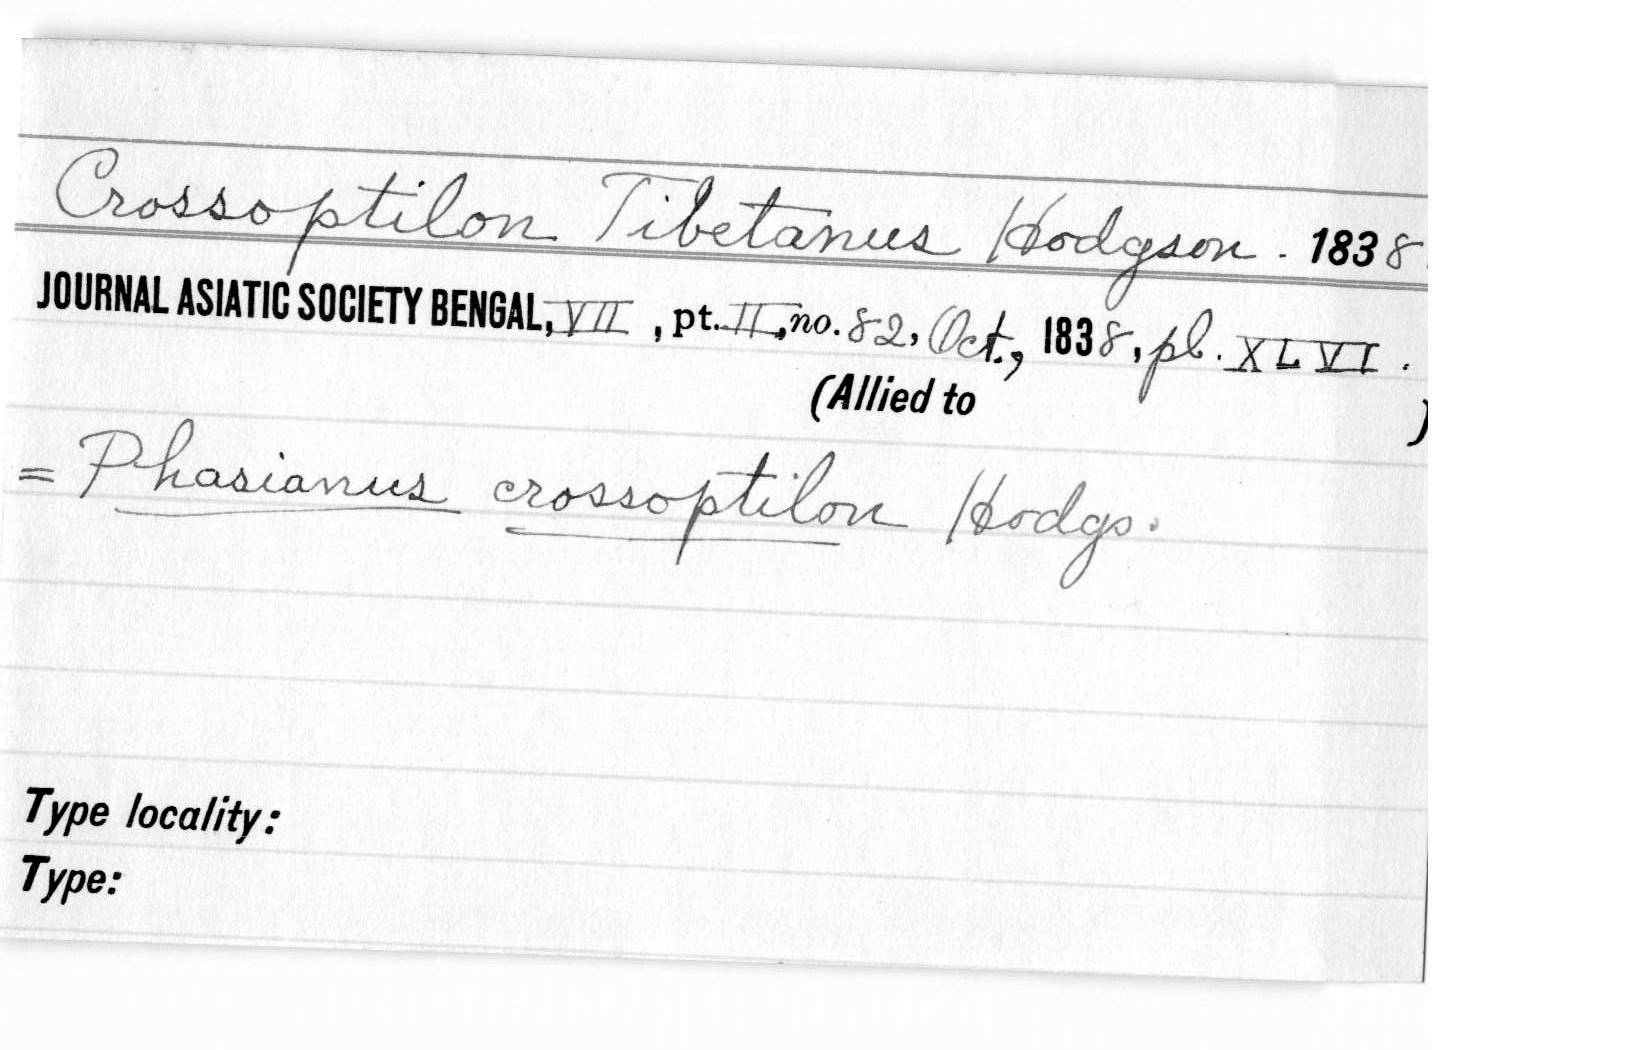 Crossoptilon Tibetanus Hodgson. 1838
JOURNAL ASIATIC SOCIETY BENGAL, VII, pt. II, no. 82, Oct., 1838, pl. XLVI.
(Allied to )
= Phasianus crossoptilon Hodgs.
Type locality:
Type: